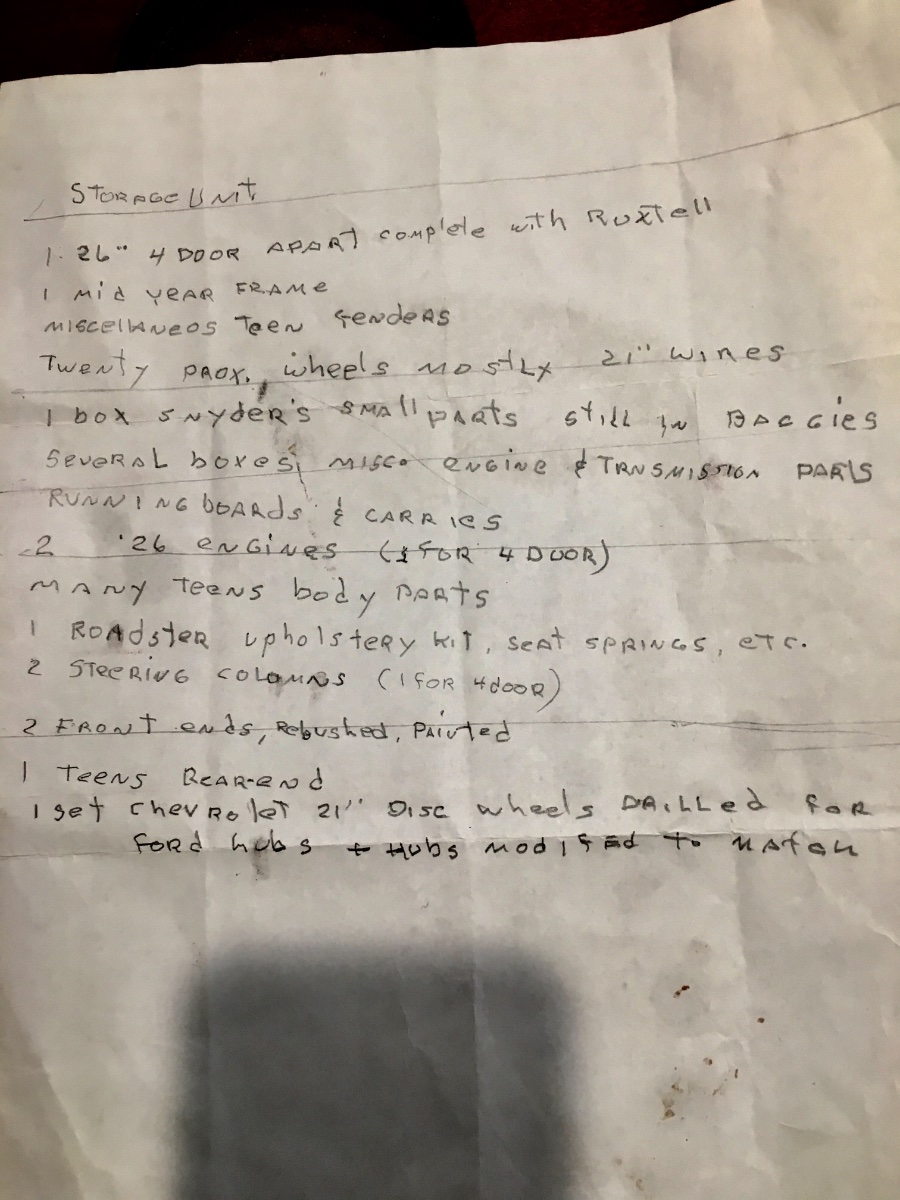 STORAGE UNIT
1. 26" 4 DOOR APART complete with Ruxtell
1 Mid YEAR FRAME
MISCELLANEOS TEEN FENDERS
TWENTY PROX. wheels MOSTLY 21" WIRES
1 box SNYDER'S SMALL PARTS STILL IN BAGGIES
SEVERAL boxes, MISC. ENGINE & TRNSMISSION PARTS
RUNNING bOARds & CARRIES
2 '26 ENGINES (1 FOR 4 DOOR)
MANY TEENS body PARTS
1 ROADSTER UPHOLSTERY KIT, SEAT SPRINGS, ETC.
2 STEERING COLOMNS (1 FOR 4 dOOR)
2 FRONT ends, Rebushed, PAINTED
1 TEENS REAR-END
1 SET CHEVROLET 21" DISC wheels DRILLED FOR
FORD hubs + HUBS MODIFIED TO MATCH